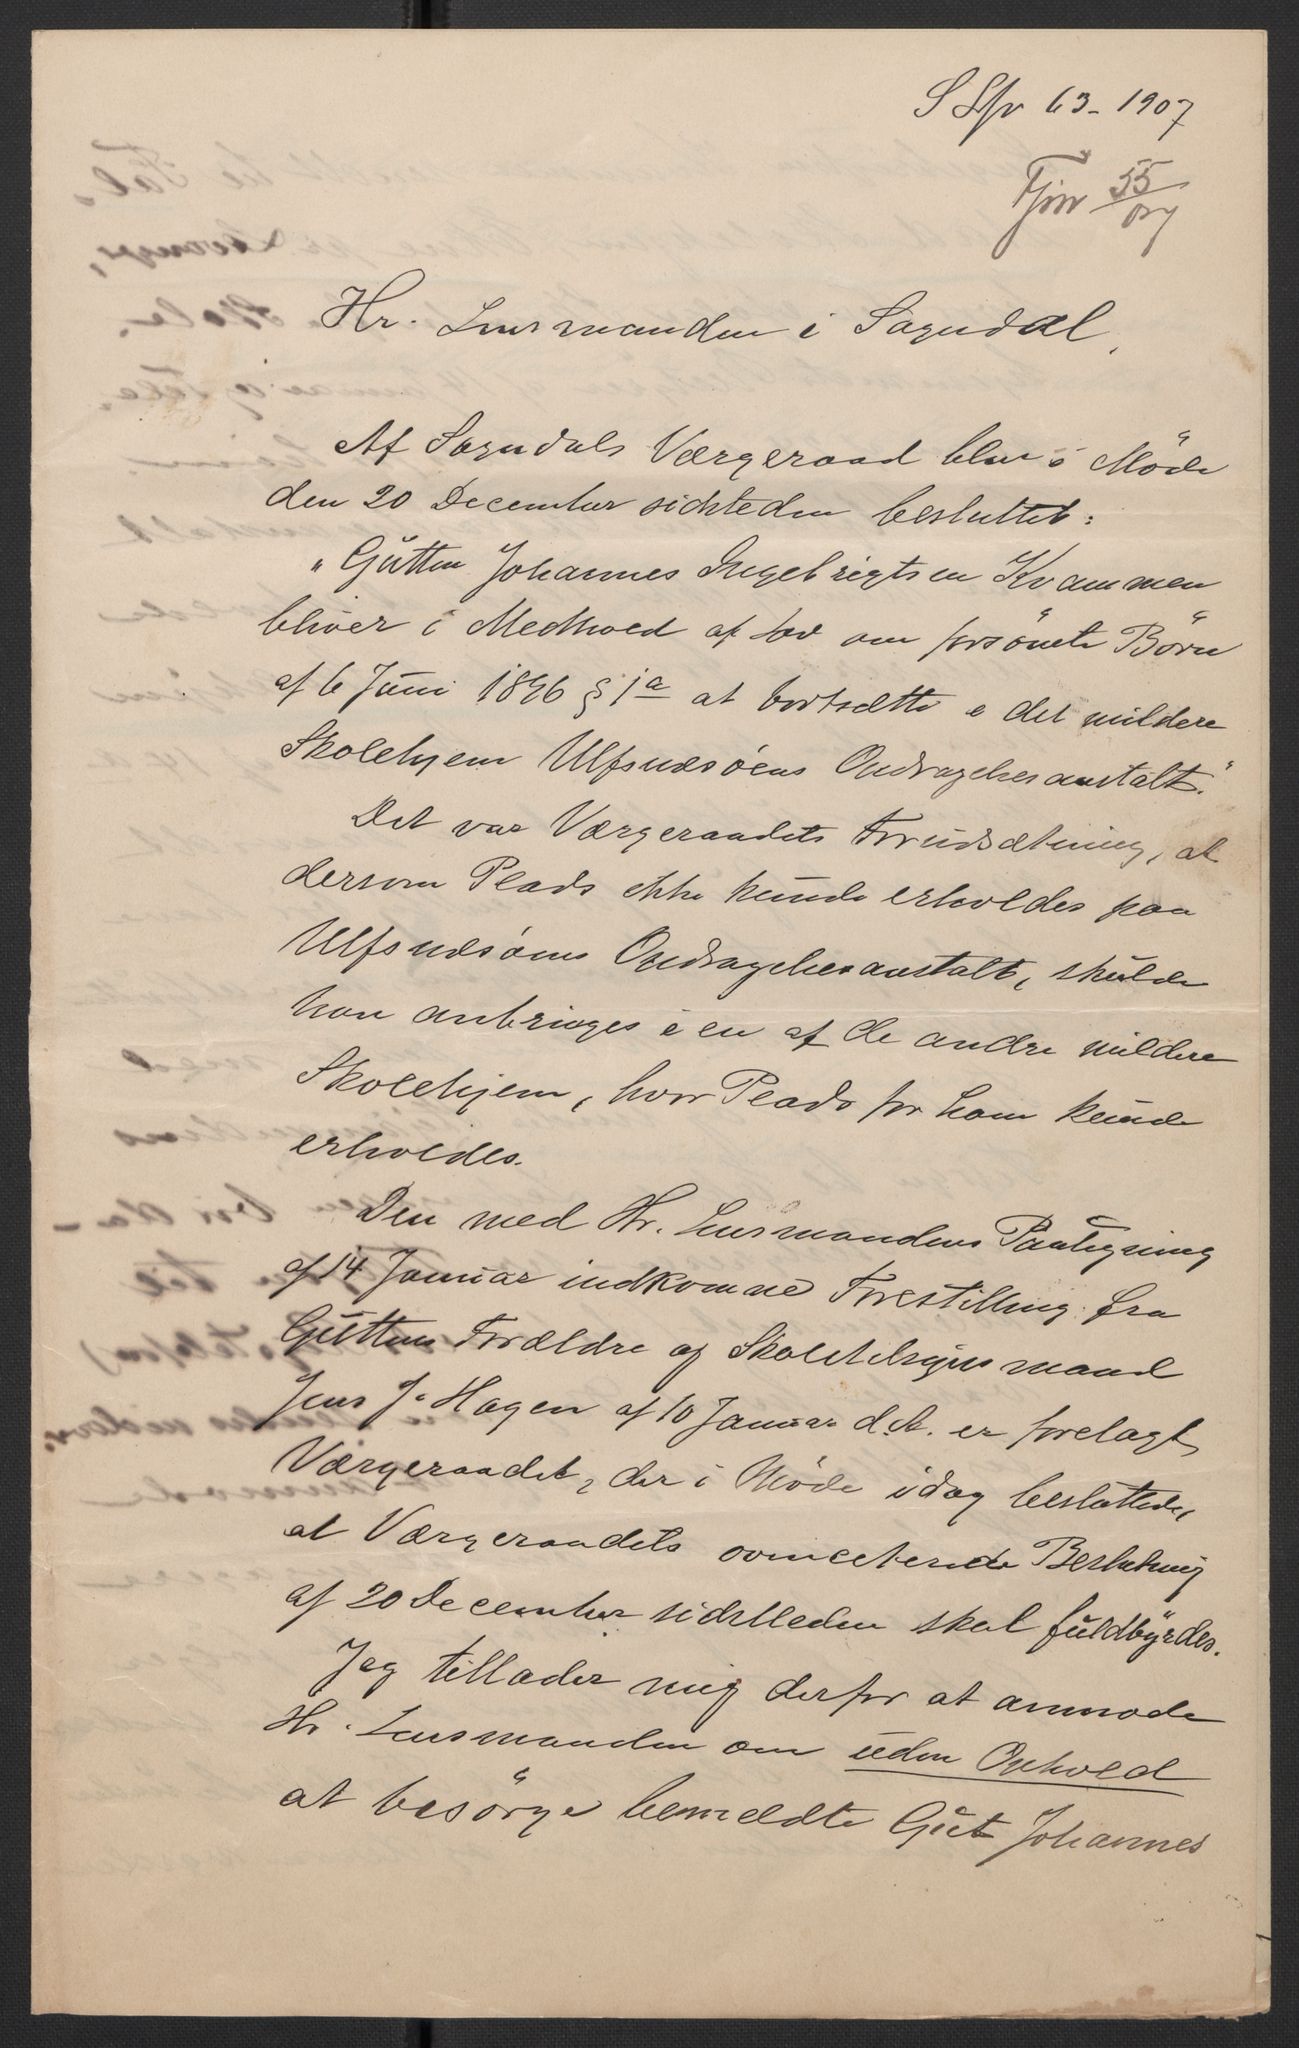 S Lfv 63 - 1907
Fjnr 55/07
Hr. Lensmanden i Sogndal.
Af Sogndals Værgeraad blev i Møde
den 20 December sidstleden besluttet:
"Gutten Johannes Ingebrigtsen Kvammen
bliver i Medhold af Lov om forsömte Börn
af 6 Juni 1896 § 1 a at bortsætte i det mildere
Skolehjem Ulfsnæsøens Opdragelsesanstalt."
Det var Værgeraadets Forudsætning, at
dersom Plads ikke kunde erholdes paa
Ulfsnæsøens Opdragelsesanstalt, skulde
han anbringes i en af de andre mildere
Skolehjem, hvor Plads for ham kunde
erholdes.
Den med Hr. Lensmandens Paategning
af 14 Januar indkomne Forestilling fra
Guttens Forældre og Skoletilsynsmand
Jens J. Hagen af 10 Januar d.A. er forelagt
Værgeraadet, der i Møde idag besluttede,
at Værgeraadets ovenciterede Beslutning
af 20 December sidstleden skal fuldbyrdes.
Jeg tillader mig derfor at anmode
Hr. Lensmanden om uden Ophold
at besørge bemeldte Gut Johannes